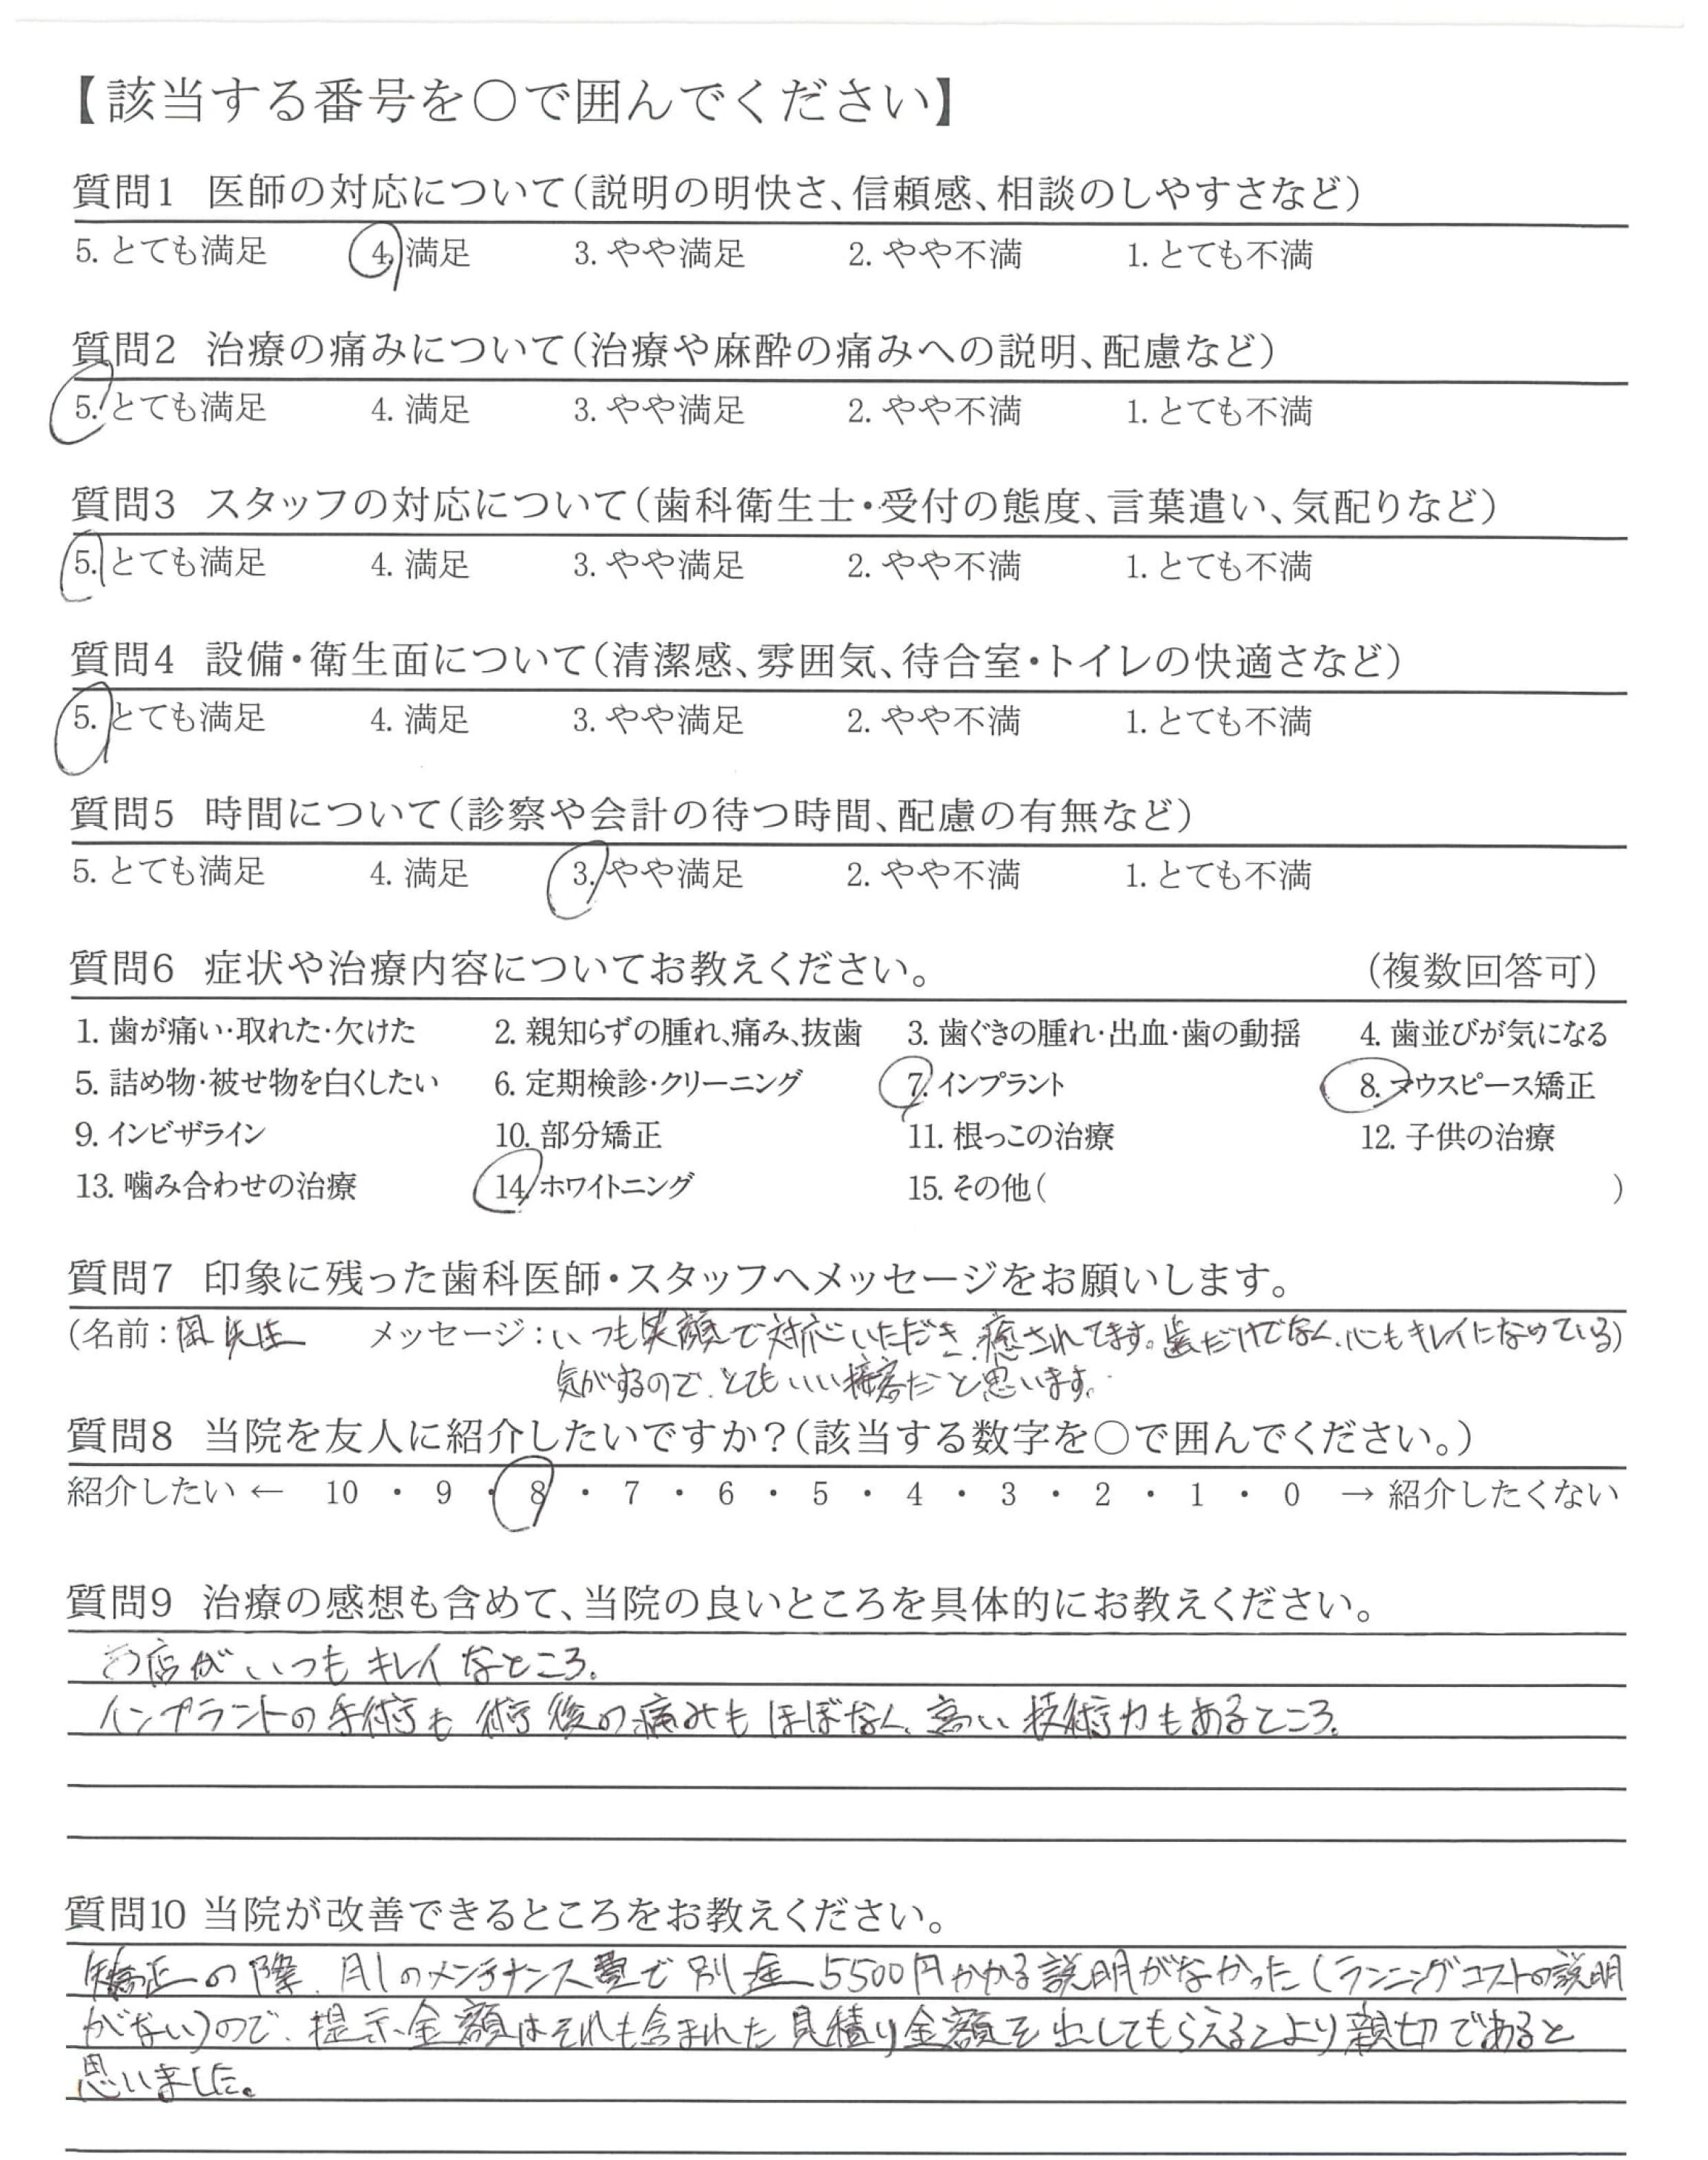 【該当する番号を○で囲んでください】
質問1 医師の対応について（説明の明快さ、信頼感、相談のしやすさなど）
5. とても満足 4. 満足 3. やや満足 2. やや不満 1. とても不満
質問2 治療の痛みについて（治療や麻酔の痛みへの説明、配慮など）
5. とても満足 4. 満足 3. やや満足 2. やや不満 1. とても不満
質問3 スタッフの対応について（歯科衛生士・受付の態度、言葉遣い、気配りなど）
5. とても満足 4. 満足 3. やや満足 2. やや不満 1. とても不満
質問4 設備・衛生面について（清潔感、雰囲気、待合室・トイレの快適さなど）
5. とても満足 4. 満足 3. やや満足 2. やや不満 1. とても不満
質問5 時間について（診察や会計の待つ時間、配慮の有無など）
5. とても満足 4. 満足 3. やや満足 2. やや不満 1. とても不満
質問6 症状や治療内容についてお教えください。 （複数回答可）
1. 歯が痛い・取れた・欠けた 2. 親知らずの腫れ、痛み、抜歯 3. 歯ぐきの腫れ・出血・歯の動揺 4. 歯並びが気になる
5. 詰め物・被せ物を白くしたい 6. 定期検診・クリーニング 7. インプラント 8. マウスピース矯正
9. インビザライン 10. 部分矯正 11. 根っこの治療 12. 子供の治療
13. 噛み合わせの治療 14. ホワイトニング 15. その他（ ）
質問7 印象に残った歯科医師・スタッフへメッセージをお願いします。
（名前： 先生 メッセージ：いつも笑顔で対応いただき、癒されてます。歯だけでなく、心もキレイになっている）
気がするので、とてもいい接客だと思います。
質問8 当院を友人に紹介したいですか？（該当する数字を○で囲んでください。）
紹介したい ← 10 ・ 9 ・ 8 ・ 7 ・ 6 ・ 5 ・ 4 ・ 3 ・ 2 ・ 1 ・ 0 → 紹介したくない
質問9 治療の感想も含めて、当院の良いところを具体的にお教えください。
お店がいつもキレイなところ。
インプラントの手術も術後の痛みもほぼなく、高い技術力もあるところ。
質問10 当院が改善できるところをお教えください。
矯正の際、月1のメンテナンス費で別途5500円かかる説明がなかった（ランニングコストの説明
がない）ので、提示金額はそれも含まれた見積り金額を出してもらえるとより親切であると
思いました。